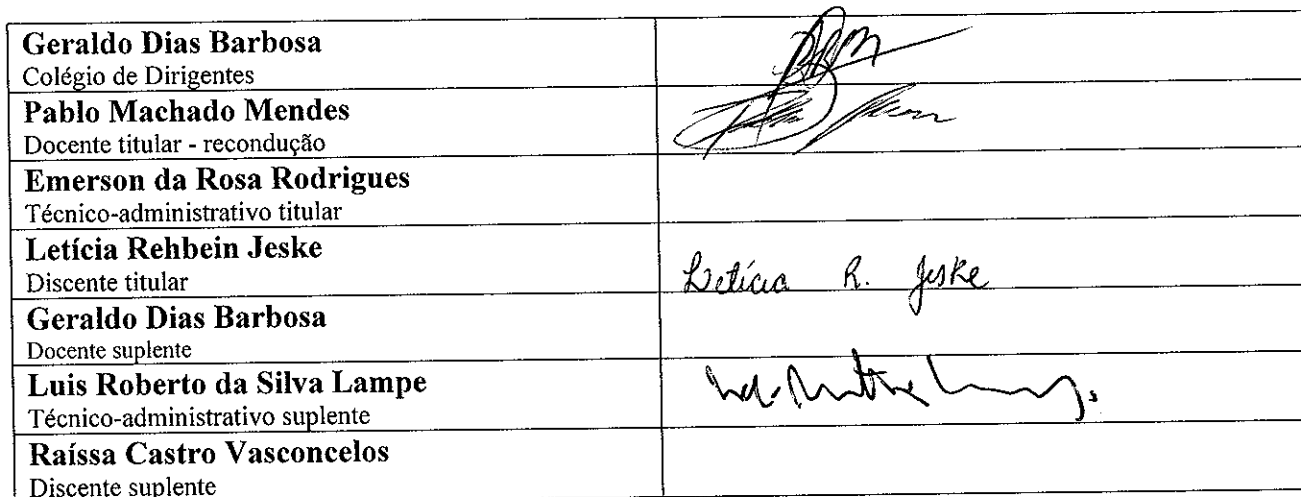 Geraldo Dias Barbosa
Colégio de Dirigentes
Pablo Machado Mendes
Docente titular - recondução
Emerson da Rosa Rodrigues
Técnico-administrativo titular
Letícia Rehbein Jeske
Discente titular
Letícia R. Jeske
Geraldo Dias Barbosa
Docente suplente
Luis Roberto da Silva Lampe
Técnico-administrativo suplente
Raíssa Castro Vasconcelos
Discente suplente